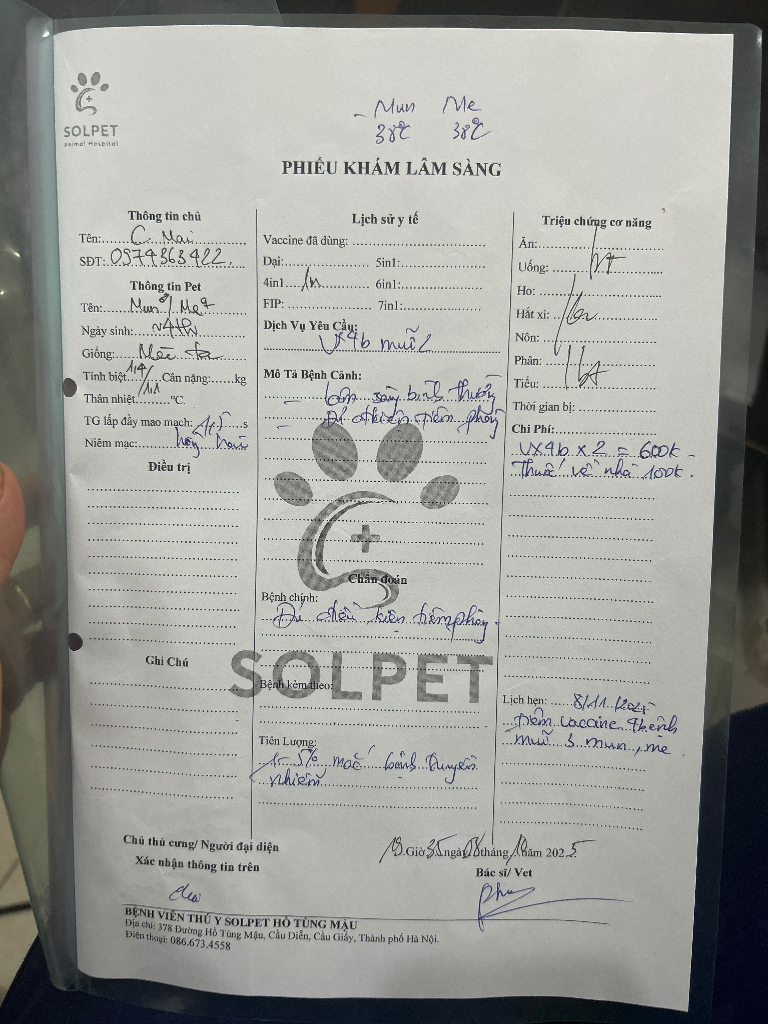 SOLPET
Animal Hospital
- Mun Me
38°C 38°C
PHIẾU KHÁM LÂM SÀNG
Thông tin chủ
Tên: C. Mai
SĐT: 0974363422
Thông tin Pet
Tên: Mun♂/Me♀
Ngày sinh: ~4th
Giống: Mèo ta
Tính biệt 1,4/1,1 Cân nặng: kg
Thân nhiệt °C.
TG lấp đầy mao mạch: <1,5 s
Niêm mạc: hồng
Điều trị
Ghi Chú
Lịch sử y tế
Vaccine đã dùng:
Dại: 5in1:
4in1 1m 6in1:
FIP: 7in1:
Dịch Vụ Yêu Cầu:
VX4b mũi 2
Mô Tả Bệnh Cảnh:
- lâm sàng bình thường
- Đủ điều kiện tiêm phòng
Chẩn đoán
Bệnh chính:
Đủ điều kiện tiêm phòng
SOLPET
Bệnh kèm theo:
Tiên Lượng:
1-5% mắc bệnh truyền
nhiễm
Triệu chứng cơ năng
Ăn:
Uống: bt
Ho:
Hắt xì: ko
Nôn:
Phân: bt
Tiểu:
Thời gian bị:
Chi Phí:
VX4b x 2 = 600k -
Thuốc về nhà 100k.
Lịch hẹn: 8/11/2025
tiêm vaccine 4 bệnh
mũi 3 mun, me
Chủ thú cưng/ Người đại diện
Xác nhận thông tin trên
19.Giờ 35 ngày 18 tháng 10 năm 2025
Bác sĩ/ Vet
BỆNH VIỆN THÚ Y SOLPET HỒ TÙNG MẬU
Địa chỉ: 378 Đường Hồ Tùng Mậu, Cầu Diễn, Cầu Giấy, Thành phố Hà Nội.
Điện thoại: 086.673.4558